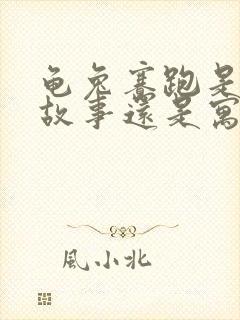 龟兔赛跑是
故事还是寓
風小北